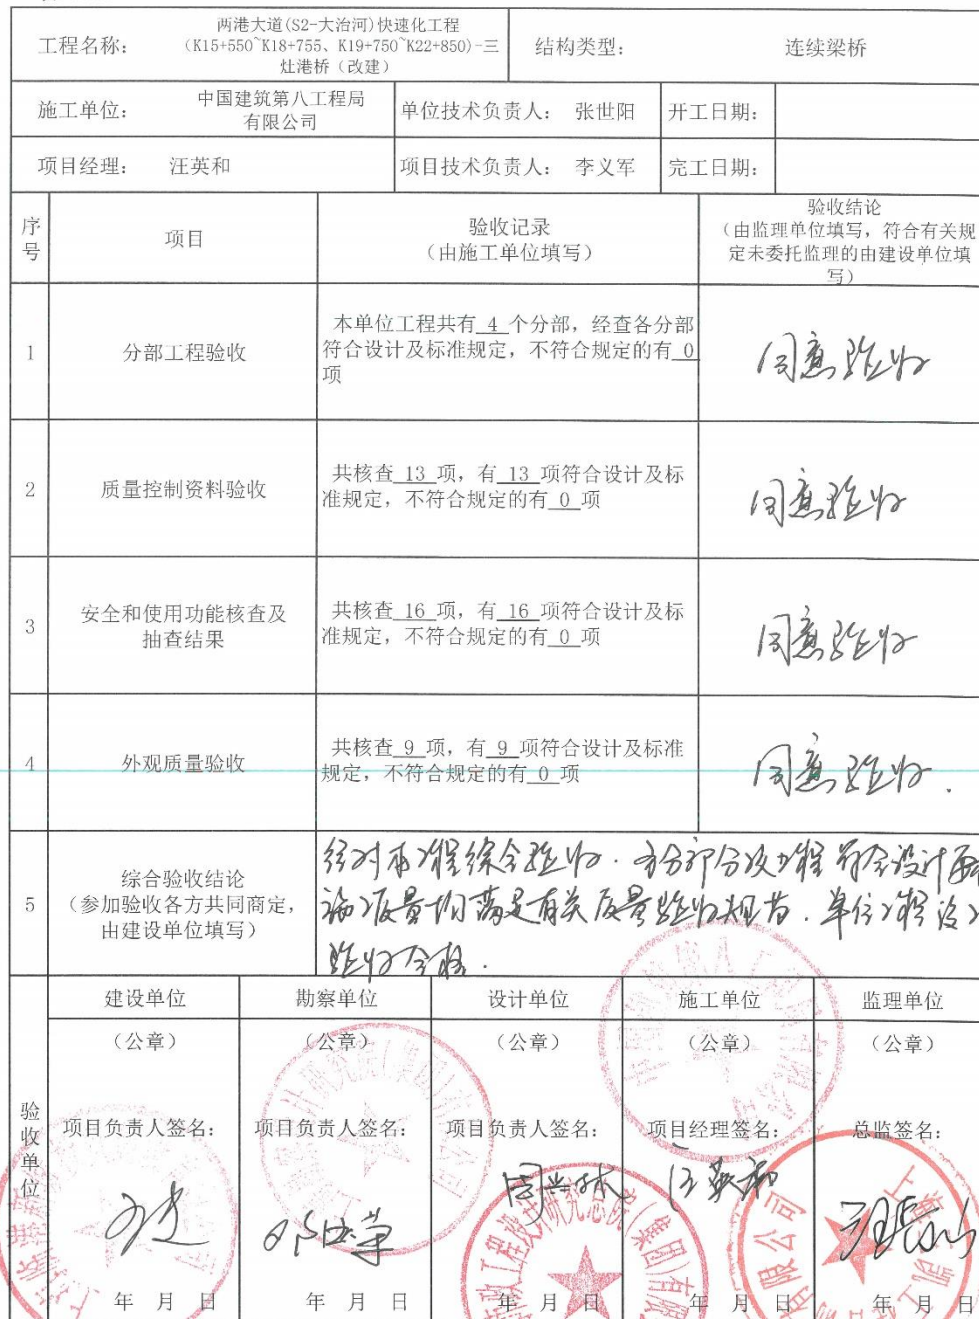 工程名称：
两港大道(S2-大治河)快速化工程
(K15+550~K18+755、K19+750~K22+850)-三
灶港桥（改建）
结构类型：
连续梁桥
施工单位：
中国建筑第八工程局
有限公司
单位技术负责人：
张世阳
开工日期：
项目经理：
汪英和
项目技术负责人：
李义军
完工日期：
序
号
项目
验收记录
（由施工单位填写）
验收结论
（由监理单位填写，符合有关规
定未委托监理的由建设单位填
写）
1
分部工程验收
本单位工程共有 4 个分部，经查各分部
符合设计及标准规定，不符合规定的有 0
项
同意验收
2
质量控制资料验收
共核查 13 项，有 13 项符合设计及标
准规定，不符合规定的有 0 项
同意验收
3
安全和使用功能核查及
抽查结果
共核查 16 项，有 16 项符合设计及标
准规定，不符合规定的有 0 项
同意验收
4
外观质量验收
共核查 9 项，有 9 项符合设计及标准
规定，不符合规定的有 0 项
同意验收.
5
综合验收结论
（参加验收各方共同商定，
由建设单位填写）
经对本工程综合验收. 各分部分项工程符合设计要
质量均满足有关质量验收规范. 单位工程
验收合格.
验
收
单
位
建设单位
勘察单位
设计单位
施工单位
监理单位
（公章）
（公章）
（公章）
（公章）
（公章）
项目负责人签名：
项目负责人签名：
项目负责人签名：
项目经理签名：
总监签名：
汪英和
年 月 日
年 月 日
年 月 日
年 月 日
年 月 日